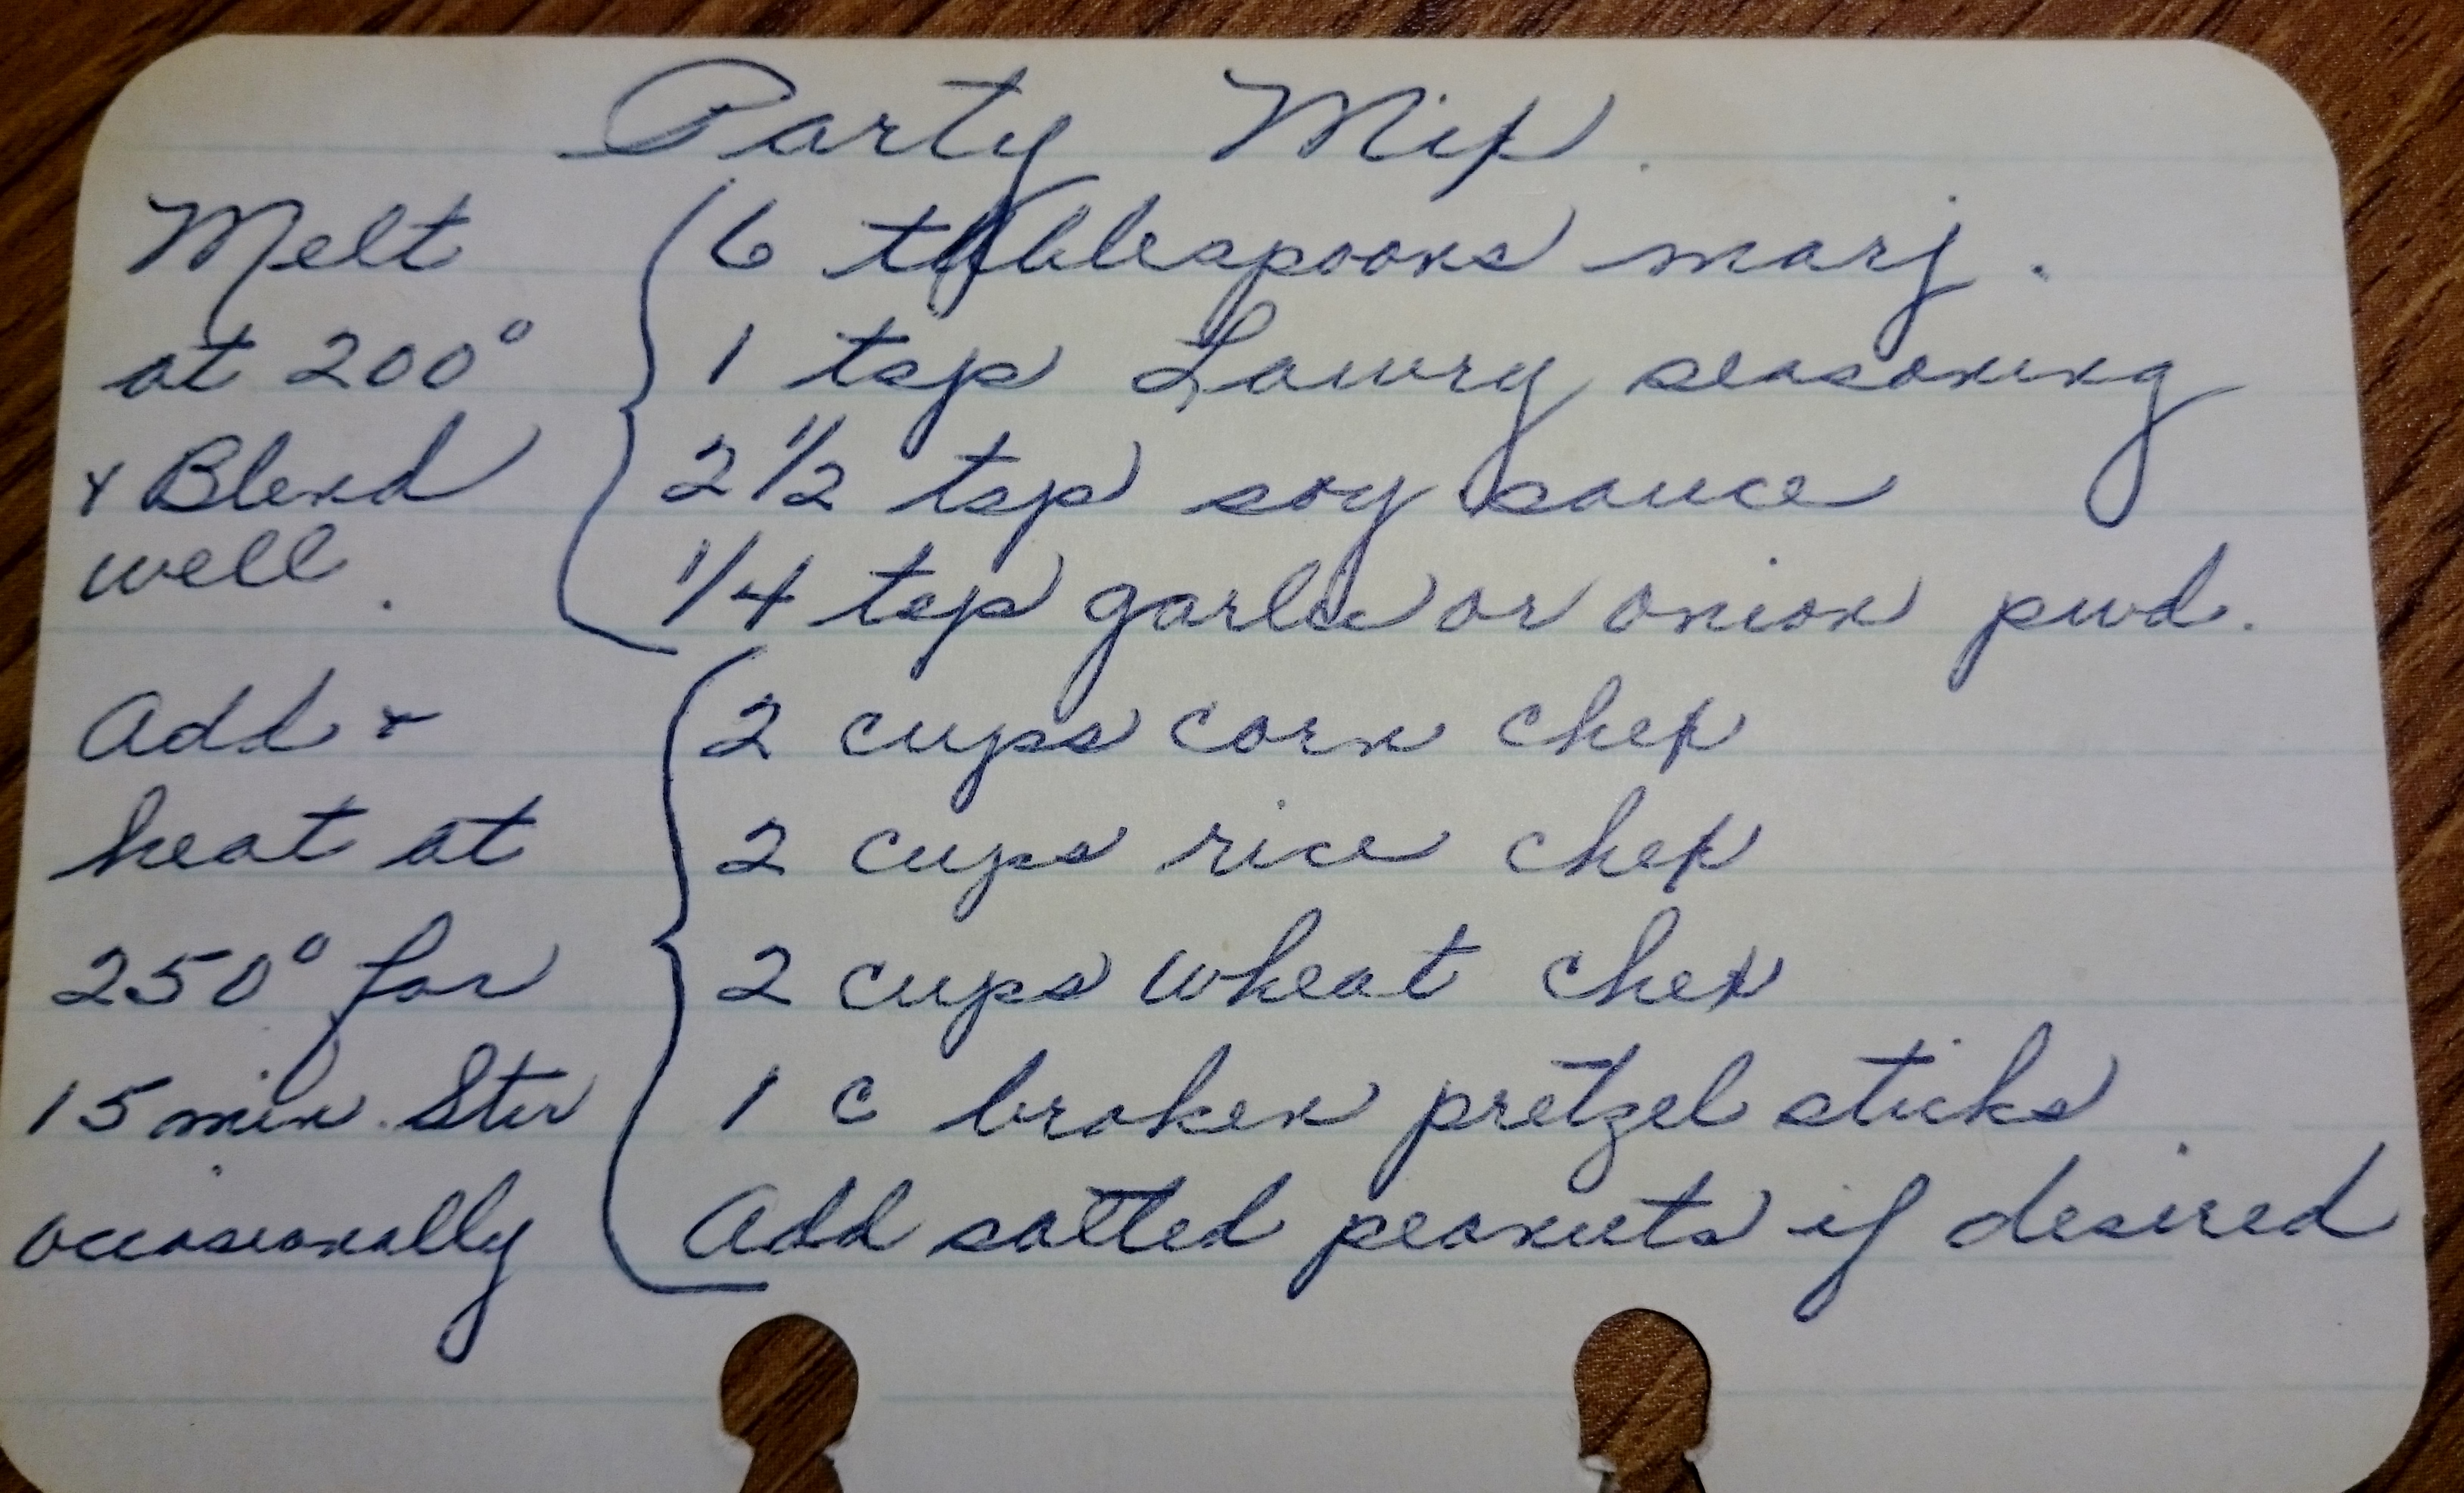 Party Mix
Melt
at 200°
& Blend
well.
6 tablespoons marj.
1 tsp Lawry seasoning
2 1/2 tsp soy sauce
1/4 tsp garlic or onion pwd.
Add &
heat at
250° for
15 min. Stir
occasionally
2 cups corn chex
2 cups rice chex
2 cups wheat chex
1 c broken pretzel sticks
Add salted peanuts if desired